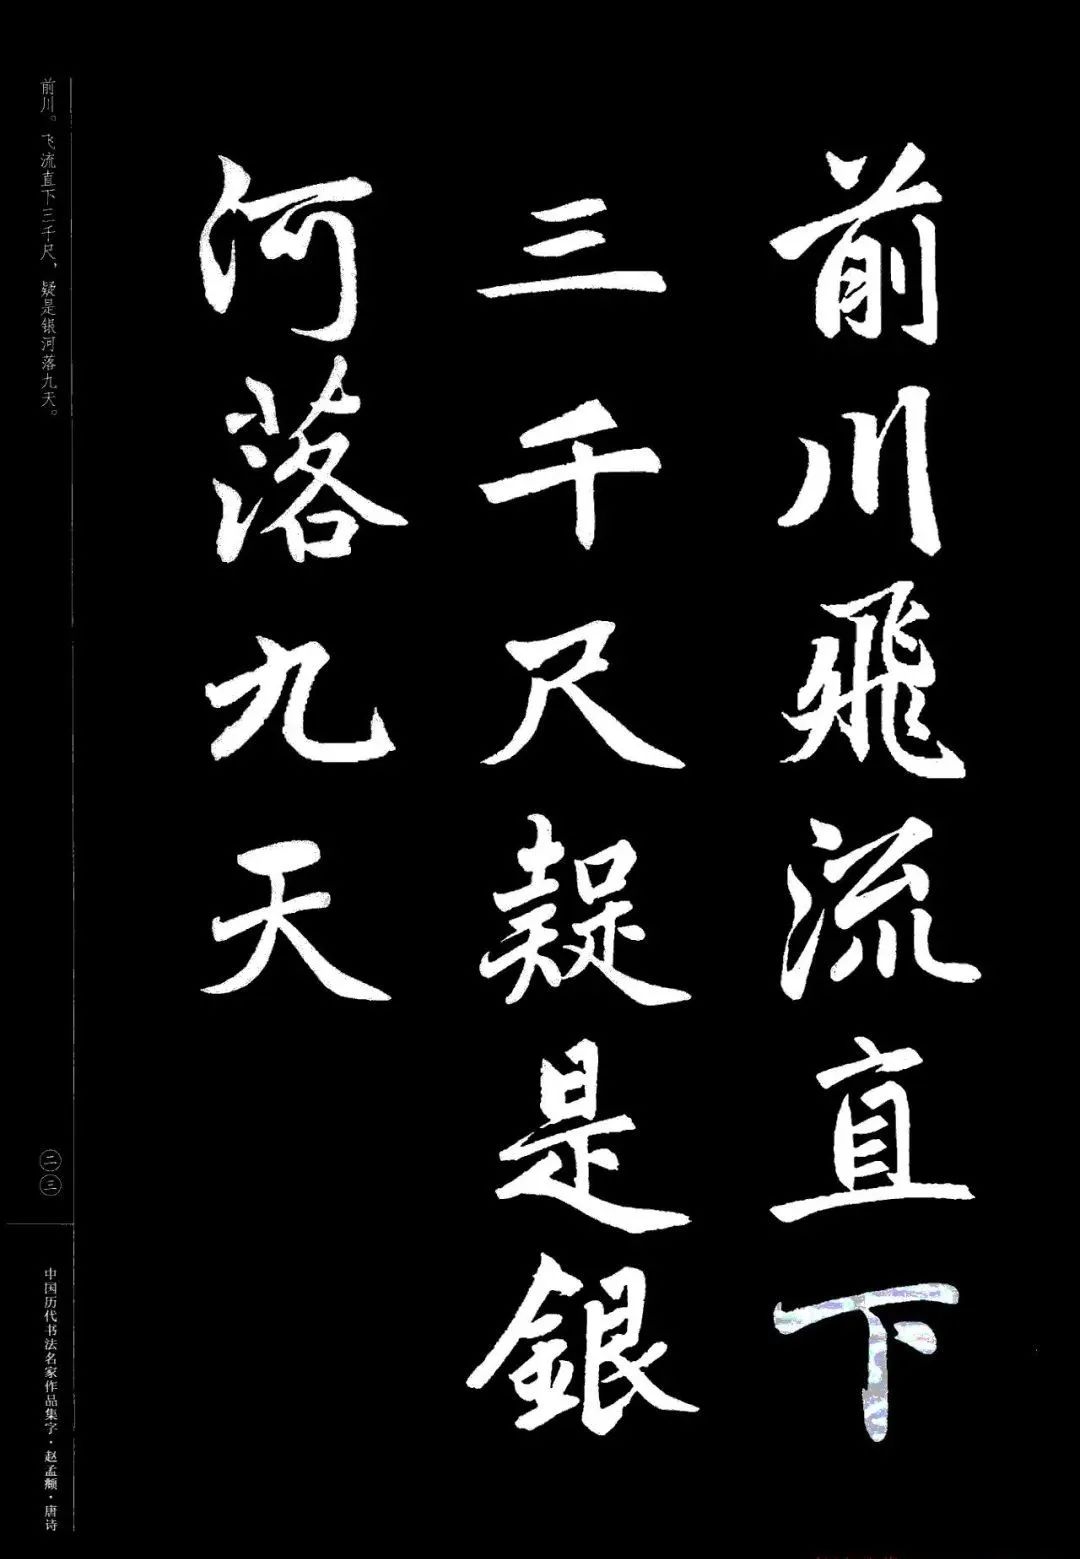 前川飛流直下
三千尺疑是銀
河落九天
前川。飞流直下三千尺，疑是银河落九天。
二三
中国历代书法名家作品集字·赵孟頫·唐诗